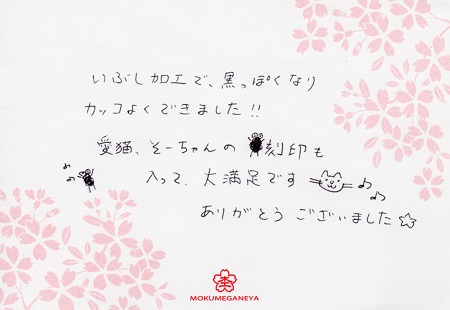 いぶし加工で、黒っぽくなり
カッコよくできました!!
愛猫、そーちゃんの刻印も
入って、大満足です
ありがとうございました☆
MOKUMEGANEYA